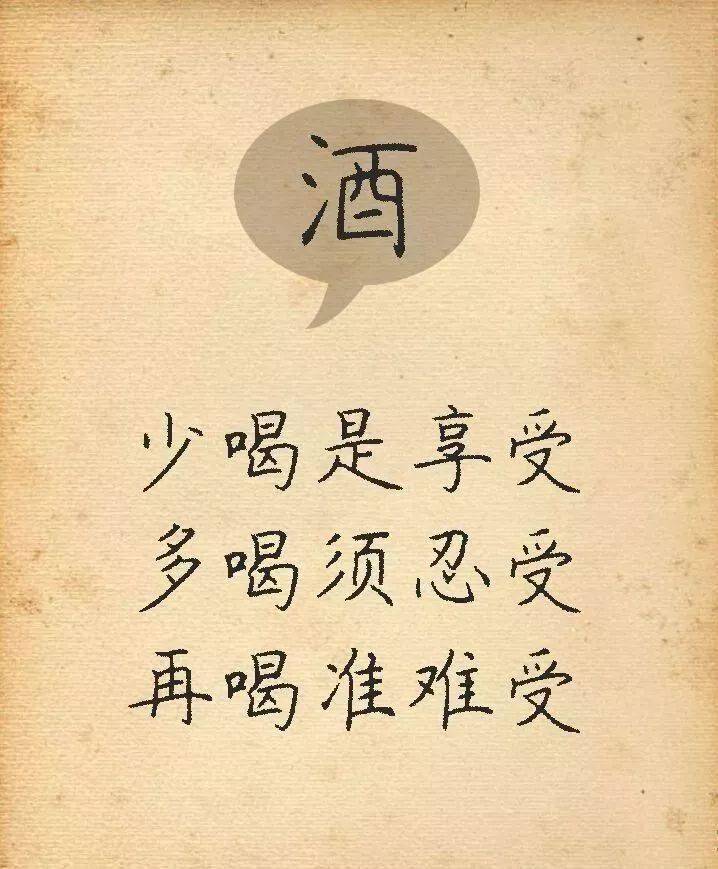 酒
少喝是享受
多喝须忍受
再喝准难受